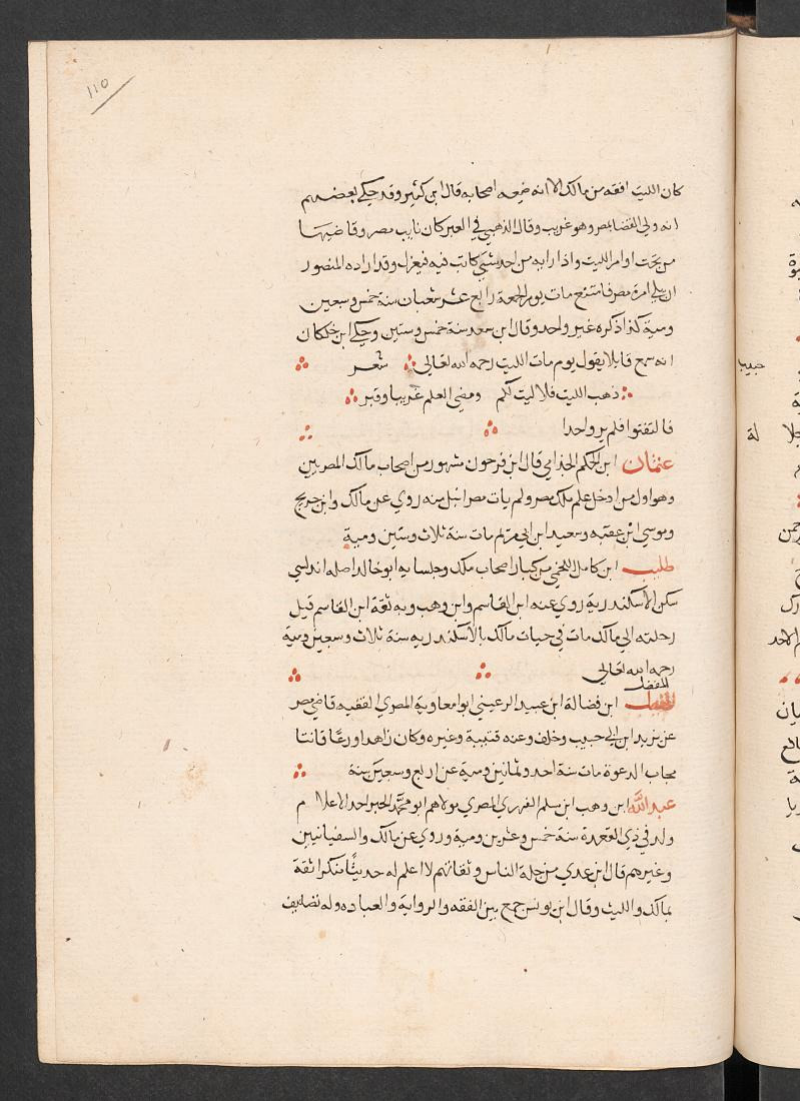 110
كان الليث افقه من مالك الا انه ضيعه اصحابه قال ابن كثير وقد حكي بعضهم
انه ولي القضا بمصر وهو غريب وقال الذهبي في العبر كان نايب مصر وقاضيها
من تحت اوامر الليث واذا رابه من احد شي كاتب فيه فيعزل وقد اراده المنصور
ان يلي امرة مصر فامتنع مات يوم الجمعة رابع عشر شعبان سنة خمس وسبعين
ومية كذا ذكره غير واحد وقال ابن سعد سنة خمس وستين وحكي ابن خلكان
انه سمع قايلا يقول يوم مات الليث رحمه الله تعالي شعر
ذهب الليث فلا ليث لكم ومضي العلم غريبا وقبر
فالتفتوا فلم يروا احدا
عثمان ابن الحكم الجذامي قال ابن فرحون مشهور من اصحاب مالك المصريين
وهو اول من ادخل علم ملك مصر ولم يات مصر انبل منه روي عن مالك وابن جريج
وموسي ابن عقبه وسعيد ابن ابي مريم مات سنة ثلاث وستين ومية
طليب ابن كامل اللخمي من كبار اصحاب ملك وجلسايه ابو خالد اصله اندلسي
سكن الاسكندرية روي عنه ابن القاسم وابن وهب وبه تفقه ابن القاسم قبل
رحلته الي مالك مات في حيات مالك بالاسكندريه سنة ثلاث وسبعين ومية
رحمه الله تعالي
المفضل
المفضل ابن فضالة ابن عبيد الرعيني ابو امعاوية المصري الفقيه قاضي مصر
عن يزيد ابن ابي حبيب وخلف وعنه قتيبة وغيره وكان زاهدا ورعا قانتا
مجاب الدعوة مات سنة احد وثمانين ومية عن اربع وسبعين سنة
عبد الله ابن وهب ابن سلم الفهري المصري مولاهم ابو محمد الحبر احد الاعلام
ولد في ذي القعدة سنة خمس وعشرين ومية وروي عن مالك والسفيانين
وغيرهم قال ابن عدي من جلة الناس وثقاتهم لا اعلم له حديثا منكرا ثقة
بمالك والليث وقال ابن يونس جمع بين الفقه والرواية والعباده وله تصانيف